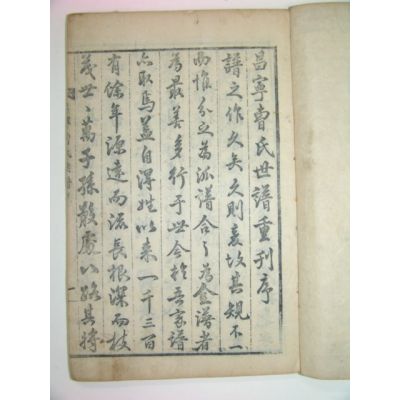 昌寧曺氏世譜重刋序
譜之作久矣之則襄故其規不一
而惟分之爲派譜合之爲全譜者
爲最善多行于世今於吾家譜
亦取焉盖自得姓以來一千三百
有餘年源遠而流長根深而枝
茂世〻萬子孫散處八路其將